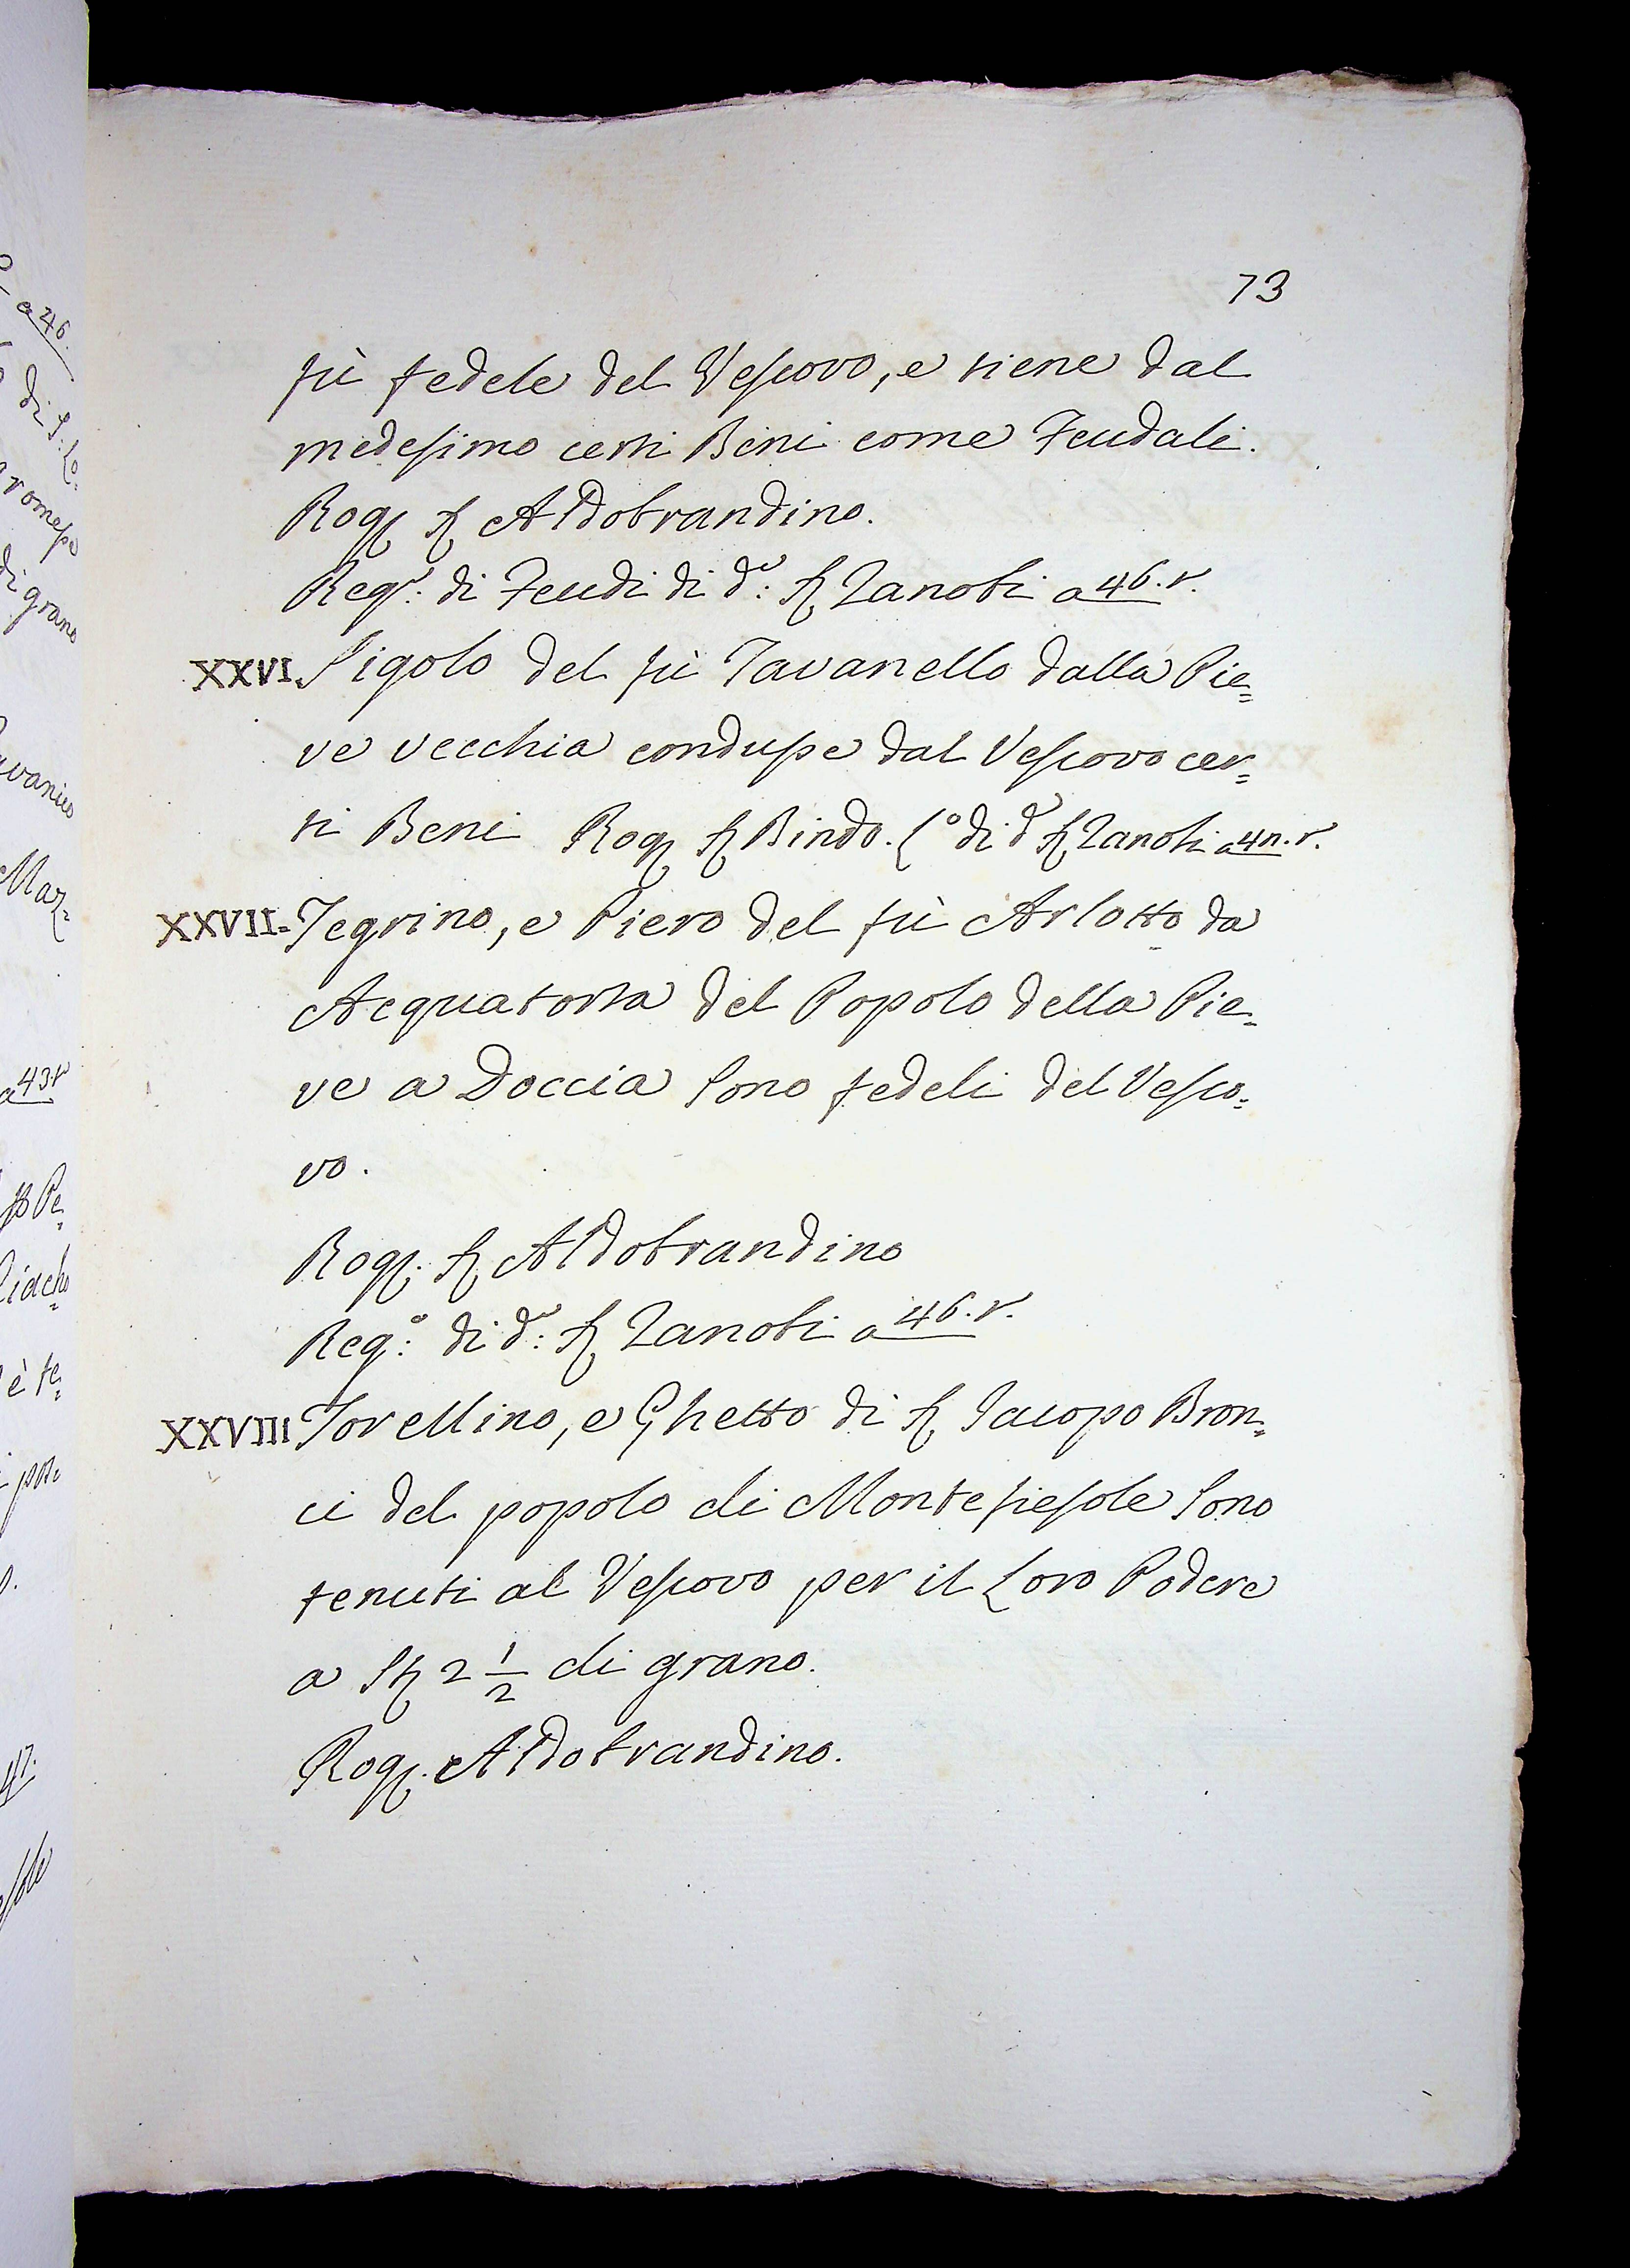 73
fù fedele del Vescovo, e tiene dal
medesimo certi Beni come Feudali.
Rog. S. Aldobrandino.
Reg.º: di Feudi di d.º: S. Zanobi a 46. r.
XXVI. Sigolo del fù Tavanello dalla Pie=
ve vecchia condusse dal Vescovo cer=
ti Beni Rog. S. Bindo. Lº di d.º S. Zanobi a 4n. r.
XXVII. Tegrino, e Piero del fù Arlotto da
Acquatorta del Popolo della Pie=
ve a Doccia sono fedeli del Vesco=
vo.
Rog. S. Aldobrandino
Reg.º: di d.º: S. Zanobi a 46. r.
XXVIII Torellino, e Ghetto di S. Iacopo Bron=
ci del popolo di Montefiesole sono
tenuti al Vescovo per il Loro Podere
a St 2 1/2 di grano.
Rog. Aldobrandino.
a 46.
di S. Lo:
di grano
Maz=
a 43 r
è te=